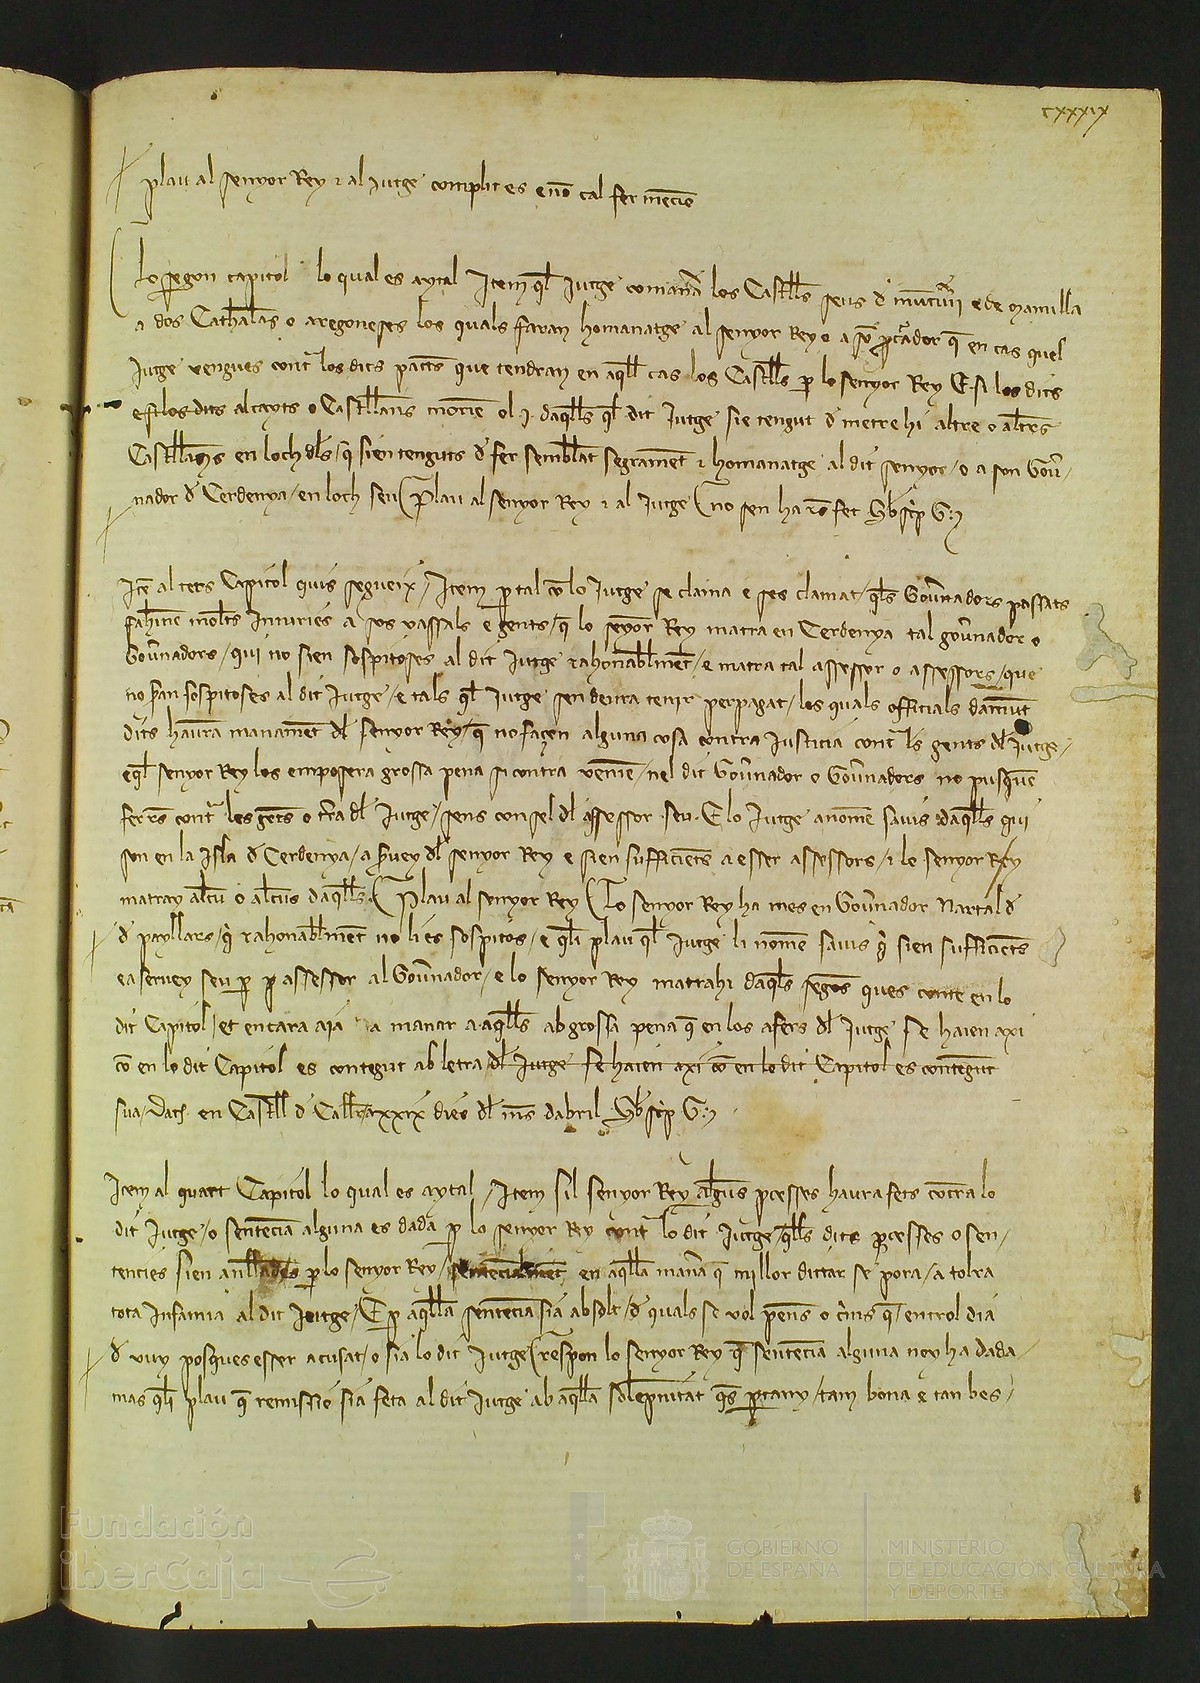 cxxxix
plau al senyor Rey & al jutge complit es e no cal fer mencio
Lo segon capitol lo qual es aytal Item ql Jutge comana los Castells seus d e de mamilla
a dos Cathalas o aragoneses los quals faran homanatge al senyor Rey o a so pcurador q en cas quel
Jutge vengues cont los dits patts que tendran en aqll cas los Castells p lo senyor Rey E si los dits
e si los dits alcayts o Castellans morie o l j daqlls ql dit Jutge sie tengut d metre hi altre o altres
Castellans en loch dls / q sien tenguts d fer semblat segrament & homanatge al dit senyor / o a son Gov
nador d Cerdenya / en loch seu Plau al senyor Rey & al Jutge no sen ha res fet
Ite al ters Capitol quis segueix / Item p tal co lo Jutge se clama e ses clamat / qls Govnadors passats
fahien molts Injuries a sos vassals e gents / q lo senyor Rey matra en Cerdenya tal govnador o
Govnadors / qui no sien sospitoses al dit Jutge rahonablment / e matra tal assessor o assessors / que
no sian sospitoses al dit Jutge / e tals ql Jutge sen deura tenir per pagat / los quals officials damut
dits haura manament dl senyor Rey / q no façen alguna cosa contra Justicia cont ls gents dl Jutge /
e ql senyor Rey los emposera grossa pena si contra venie / ne l dit Govnador o Govnadors no pusquen
fer res cont les gents o tra dl Jutge / sens consel dl assessor seu. E lo Jutge anome savis daqlls qui
son en la Isla d Cerdenya / a svey dl senyor Rey e sien sufficiets a esser assessors / & le senyor Rey
matray alcu o alcus daqlls Plau al senyor Rey Lo senyor Rey ha mes en Govnador Nartal d
d payllars / q rahonablment no li es sospitos / e qli plau ql Jutge li nome savis q sien sufficients
e a servey seu p p assessor al Govnador / e lo senyor Rey matrahi daqls segons ques conte en lo
dit Capitol / et encara aja a manar a aqlls ab grossa pena q en los afers dl Jutge se haien axi
co en lo dit Capitol es contegut ab letra dl Jutge se haien axi co en lo dit Capitol es contengut
sua / Dat en Castell d Callr a xxix dies dl mes dabril
Item al quart Capitol lo qual es aytal / Item si l senyor Rey alguns pcesses haura fets contra lo
dit Jutge / o sentecia alguna es dada p lo senyor Rey cont lo dit Jutge / qlls dits pcesses o sen /
tencies sien anllades p lo senyor Rey / en aqlla mana q millor dictar se pora / a tolra
tota infamia al dit Jutge / E p aqlla sentecia sia absolt / d quals se vol pens o crims q en trol dia
d vuy posques esser acusat / o sia lo dit Jutge respon lo senyor Rey q sentecia alguna noy ha dada
mas qli plau q remissio sia feta al dit Jutge ab aqlla solepnitat qs ptany / tam bona e tan bes /
Fundación
iberCaja
GOBIERNO
DE ESPAÑA
MINISTERIO
DE EDUCACIÓN, CULTURA
Y DEPORTE